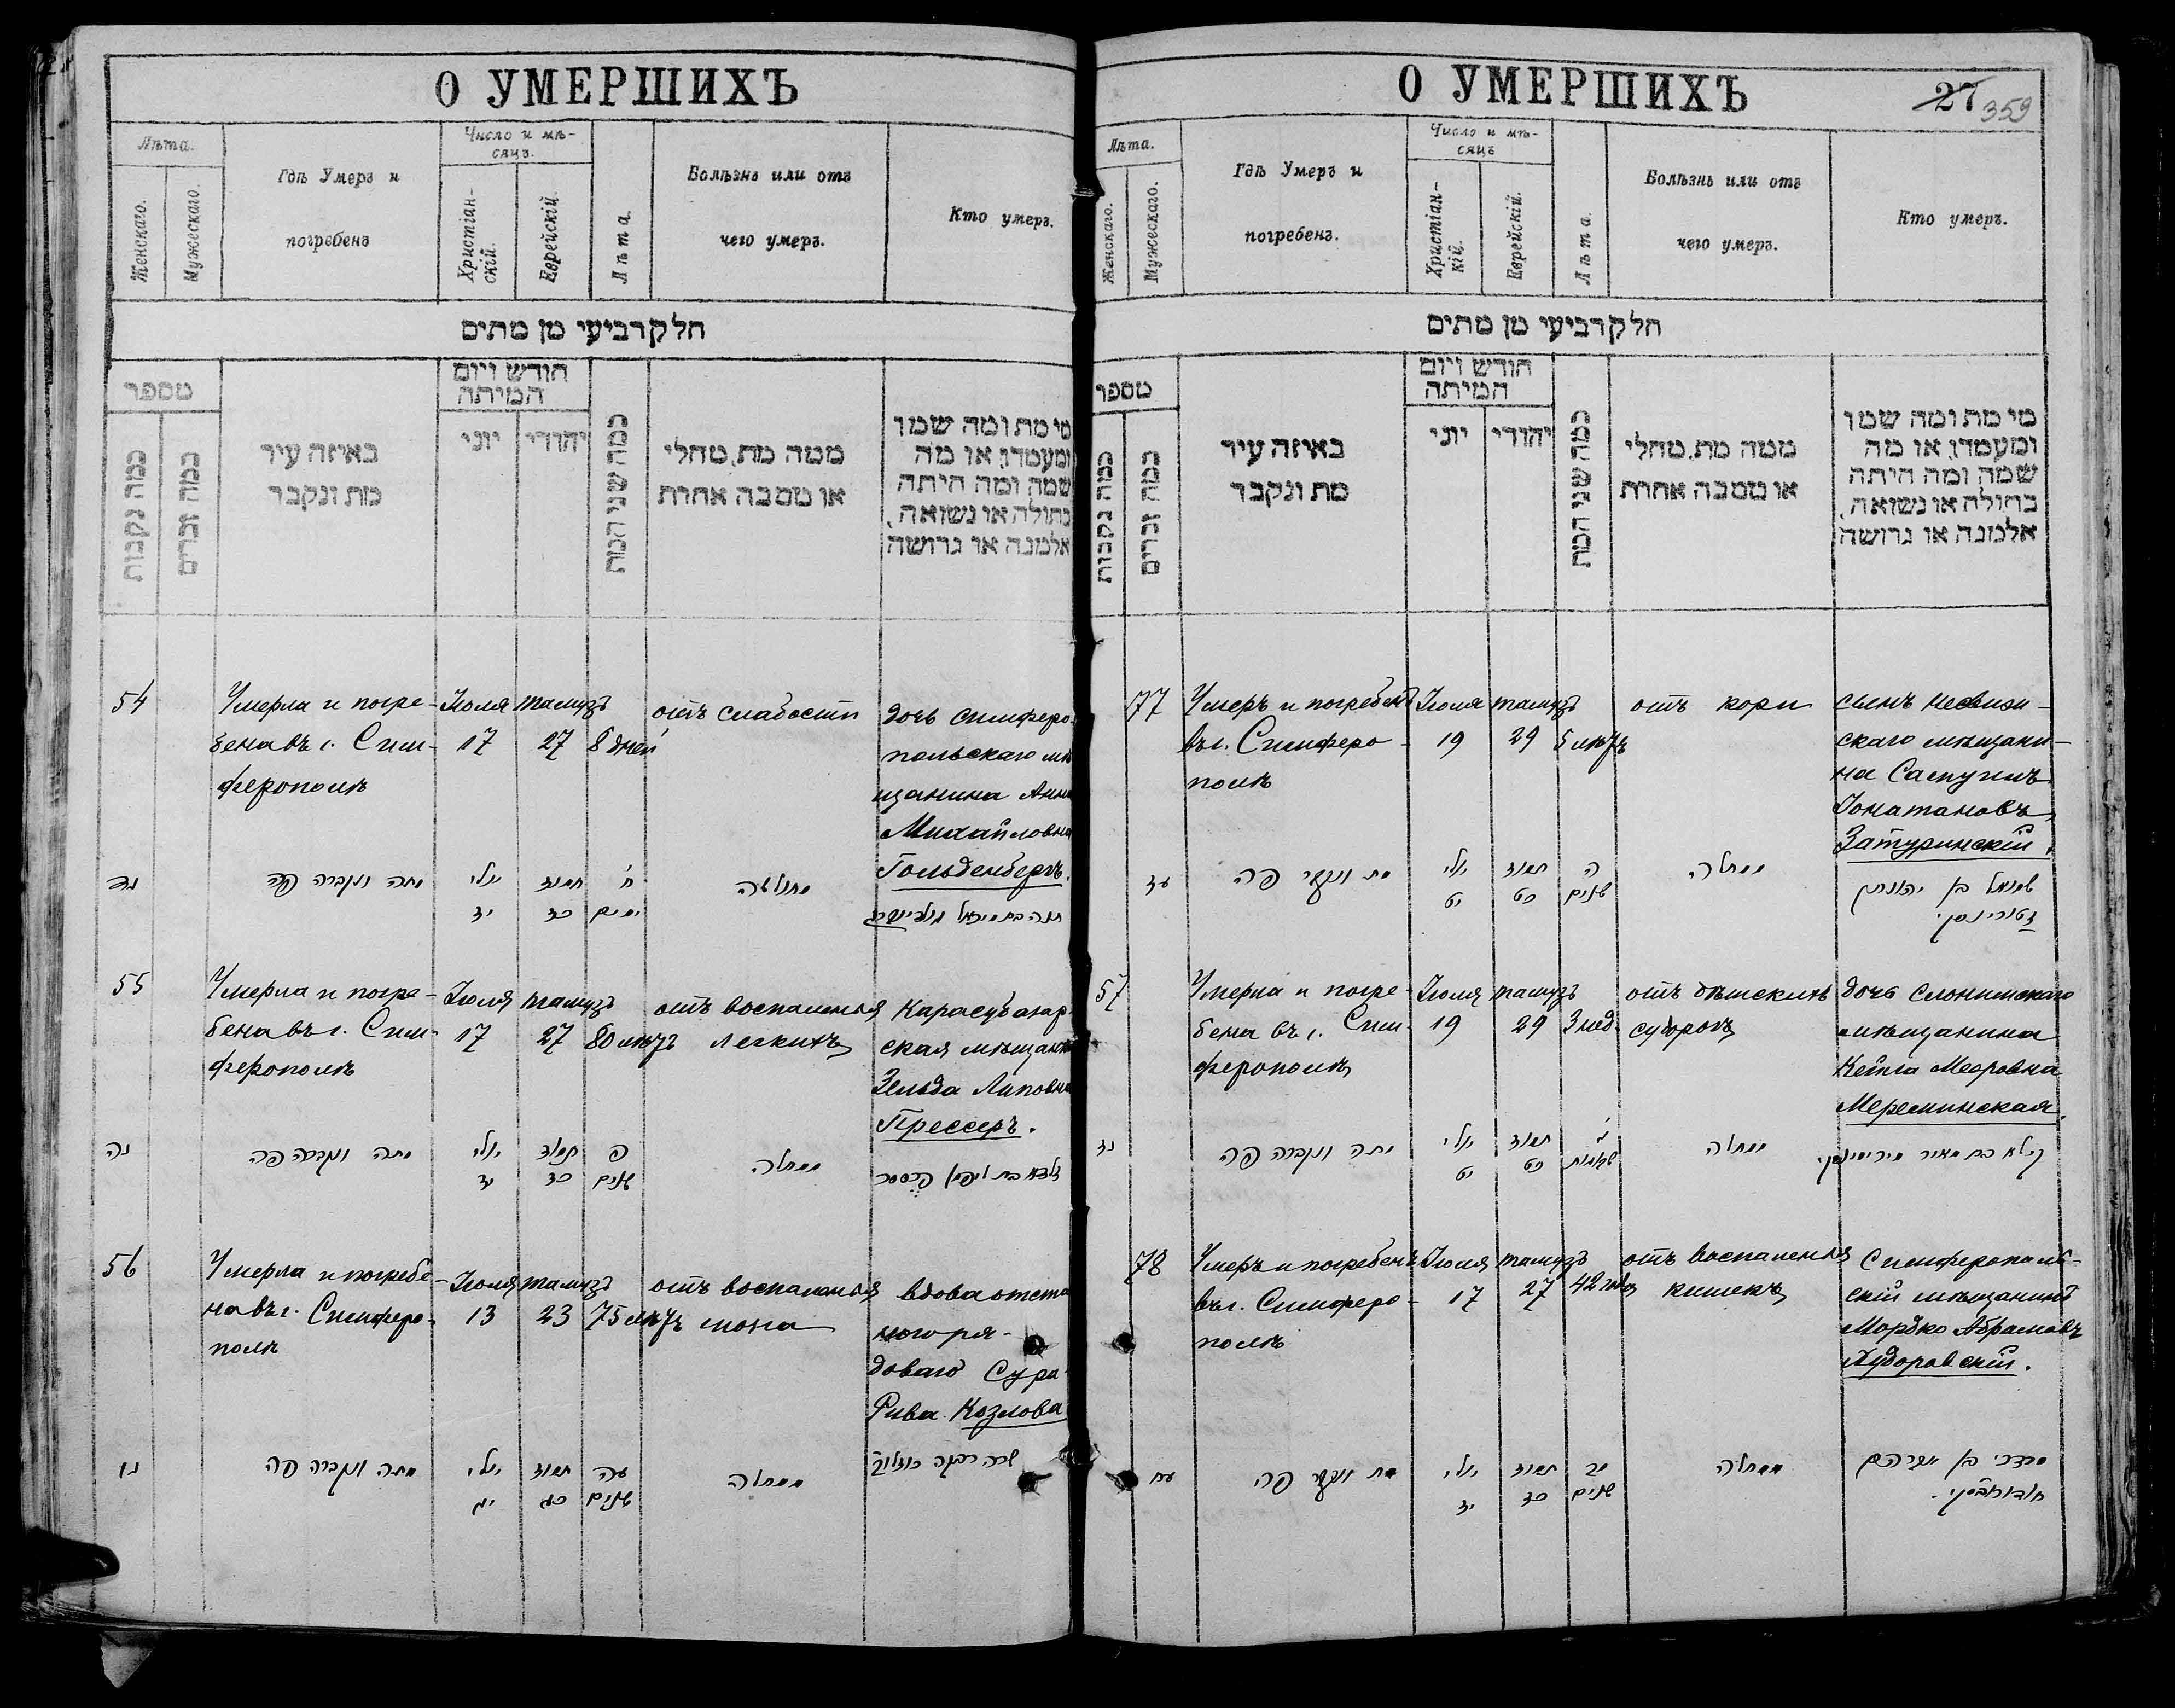 О УМЕРШИХЪ
Лѣта.
Женскаго.
Мужескаго.
Гдѣ Умеръ и
погребенъ
Число и мѣ-
сяцъ.
Христіан-
скій.
Еврейскій.
Лѣта.
Болѣзнь или отъ
чего умеръ.
Кто умеръ.
חלק רביעי מן מתים
מספר
כמה נקבות
כמה זכרים
באיזה עיר
מת ונקבר
חודש ויום
המיתה
יוני
יהודי
כמה שני המת
ממה מת, מחלי
או מסבה אחרת
מי מת ומה שמו
ומעמדו, או מה
שמה ומה היתה
בתולה או נשואה,
אלמנה או גרושה
54
Умерла и погре-
бена въ г. Сим-
ферополѣ
Іюля
17
тамузъ
27
8 дней
отъ слабости
дочь симферо
польскаго мѣ
щанина Анна
Михайловна
Гольденбергъ.
נד
מתה ונקברה פה
יולי
יז
תמוז
כז
ח
ימים
מחולשה
חנה בת מיכאל
55
Умерла и погре-
бена въ г. Сим-
ферополѣ
Іюля
17
тамузъ
27
80 лѣтъ
отъ воспаленія
легкихъ
Карасубазар
ская мѣщанка
Зельда Липовна
Прессеръ.
נה
מתה ונקברה פה
יולי
יז
תמוז
כז
פ
שנים
ממחלה
זלדא בת ליפמן פרעסער
56
Умерла и погребе-
на въ г. Симферо-
полѣ
Іюля
13
тамузъ
23
75 лѣтъ
отъ воспаленія
мозга
вдова отста
ного ря-
доваго Сура-
Рива Козлова
נו
מתה ונקברה פה
יולי
יג
תמוז
כג
עה
שנים
ממחלה
שרה רבקה קוזלוב
О УМЕРШИХЪ
27 359
Лѣта.
Женскаго.
Мужескаго.
Гдѣ Умеръ и
погребенъ.
Число и мѣ-
сяцъ
Христіан-
кій.
Еврейскій.
Лѣта.
Болѣзнь или отъ
чего умеръ.
Кто умеръ.
חלק רביעי מן מתים
מספר
כמה נקבות
כמה זכרים
באיזה עיר
מת ונקבר
חודש ויום
המיתה
יוני
יהודי
כמה שני המת
ממה מת, מחלי
או מסבה אחרת
מי מת ומה שמו
ומעמדו, או מה
שמה ומה היתה
בתולה או נשואה,
אלמנה או גרושה
77
Умеръ и погребенъ
въ г. Симферо-
полѣ
Іюля
19
тамузъ
29
5 лѣтъ
отъ кори
сынъ несвиж-
скаго мѣщани-
на Самуилъ
Іонатановъ
Затуринскій.
עז
מת ונקבר פה
יולי
יט
תמוז
כט
ה
שנים
ממחלה
שמואל בן יהונתן
זטורינסקי.
57
Умерла и погре-
бена въ г. Сим-
ферополѣ
Іюля
19
тамузъ
29
3 нед.
отъ дѣтскихъ
судорогъ
дочь слонимскаго
мѣщанина
Кейла Мееровна
Мереминская.
נז
מתה ונקברה פה
יולי
יט
תמוז
כט
ג
שבועות
ממחלה
קילא בת מאיר מירימינסקי.
78
Умеръ и погребенъ
въ г. Симферо-
полѣ
Іюля
17
тамузъ
27
42 года
отъ воспаленія
кишекъ
Симферополь-
скій мѣщанинъ
Мордко Абрамовъ
Худоровскій.
עח
מת ונקבר פה
יולי
יז
תמוז
כז
מב
שנים
ממחלה
מרדכי בן אברהם
חודורובסקי.